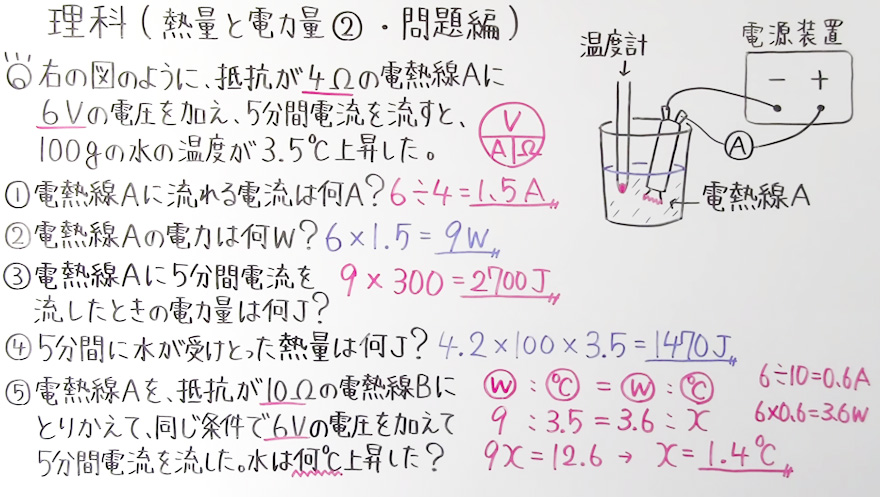 理科（熱量と電力量②・問題編）
右の図のように、抵抗が4Ωの電熱線Aに
6Vの電圧を加え、5分間電流を流すと、
100gの水の温度が3.5℃上昇した。
V
A Ω
①電熱線Aに流れる電流は何A? 6÷4=1.5A
②電熱線Aの電力は何W? 6×1.5=9W
③電熱線Aに5分間電流を
流したときの電力量は何J?
9×300=2700J
④5分間に水が受けとった熱量は何J? 4.2×100×3.5=1470J
⑤電熱線Aを、抵抗が10Ωの電熱線Bに
とりかえて、同じ条件で6Vの電圧を加えて
5分間電流を流した。水は何℃上昇した?
W:℃=W:℃
9:3.5=3.6:x
9x=12.6→x=1.4℃
6÷10=0.6A
6×0.6=3.6W
温度計
電源装置
− +
A
電熱線A